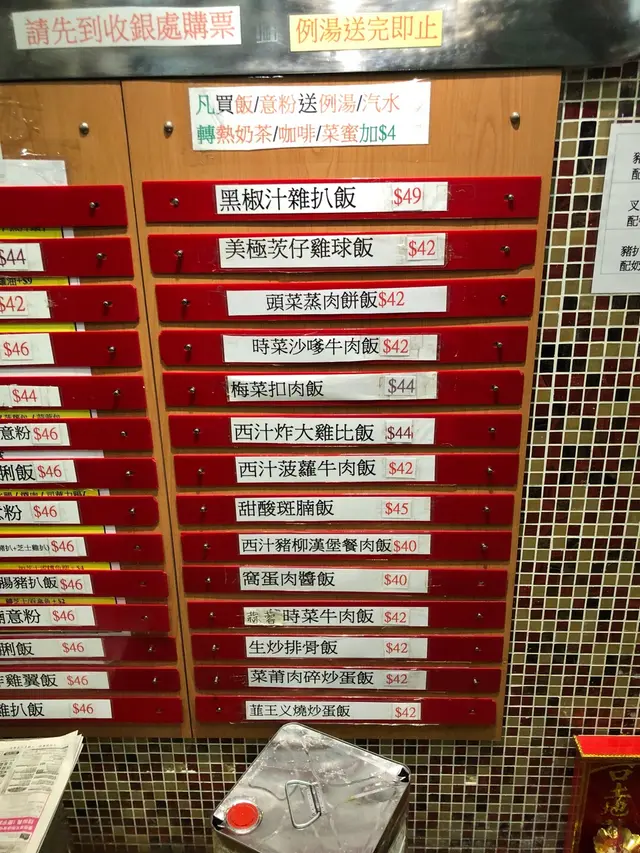 請先到收銀處購票
例湯送完即止
凡買飯/意粉送例湯/汽水
轉熱奶茶/咖啡/菜蜜加$4
黑椒汁雜扒飯 $49
美極茨仔雞球飯 $42
頭菜蒸肉餅飯$42
時菜沙嗲牛肉飯 $42
梅菜扣肉飯 $44
西汁炸大雞比飯 $44
西汁菠蘿牛肉飯 $42
甜酸斑腩飯 $45
西汁豬柳漢堡餐肉飯$40
窩蛋肉醬飯 $40
蒜蓉時菜牛肉飯 $42
生炒排骨飯 $42
菜莆肉碎炒蛋飯 $42
韮王义燒炒蛋飯 $42
$44
$42
$46
$44
意粉 $46
脷飯 $46
意粉 $46
豬扒+芝士雞扒) $46
腸豬扒飯$46
意粉 $46
脷飯 $46
雞翼飯 $46
雞扒飯 $46
豬
配
叉
配
豬扒
配奶